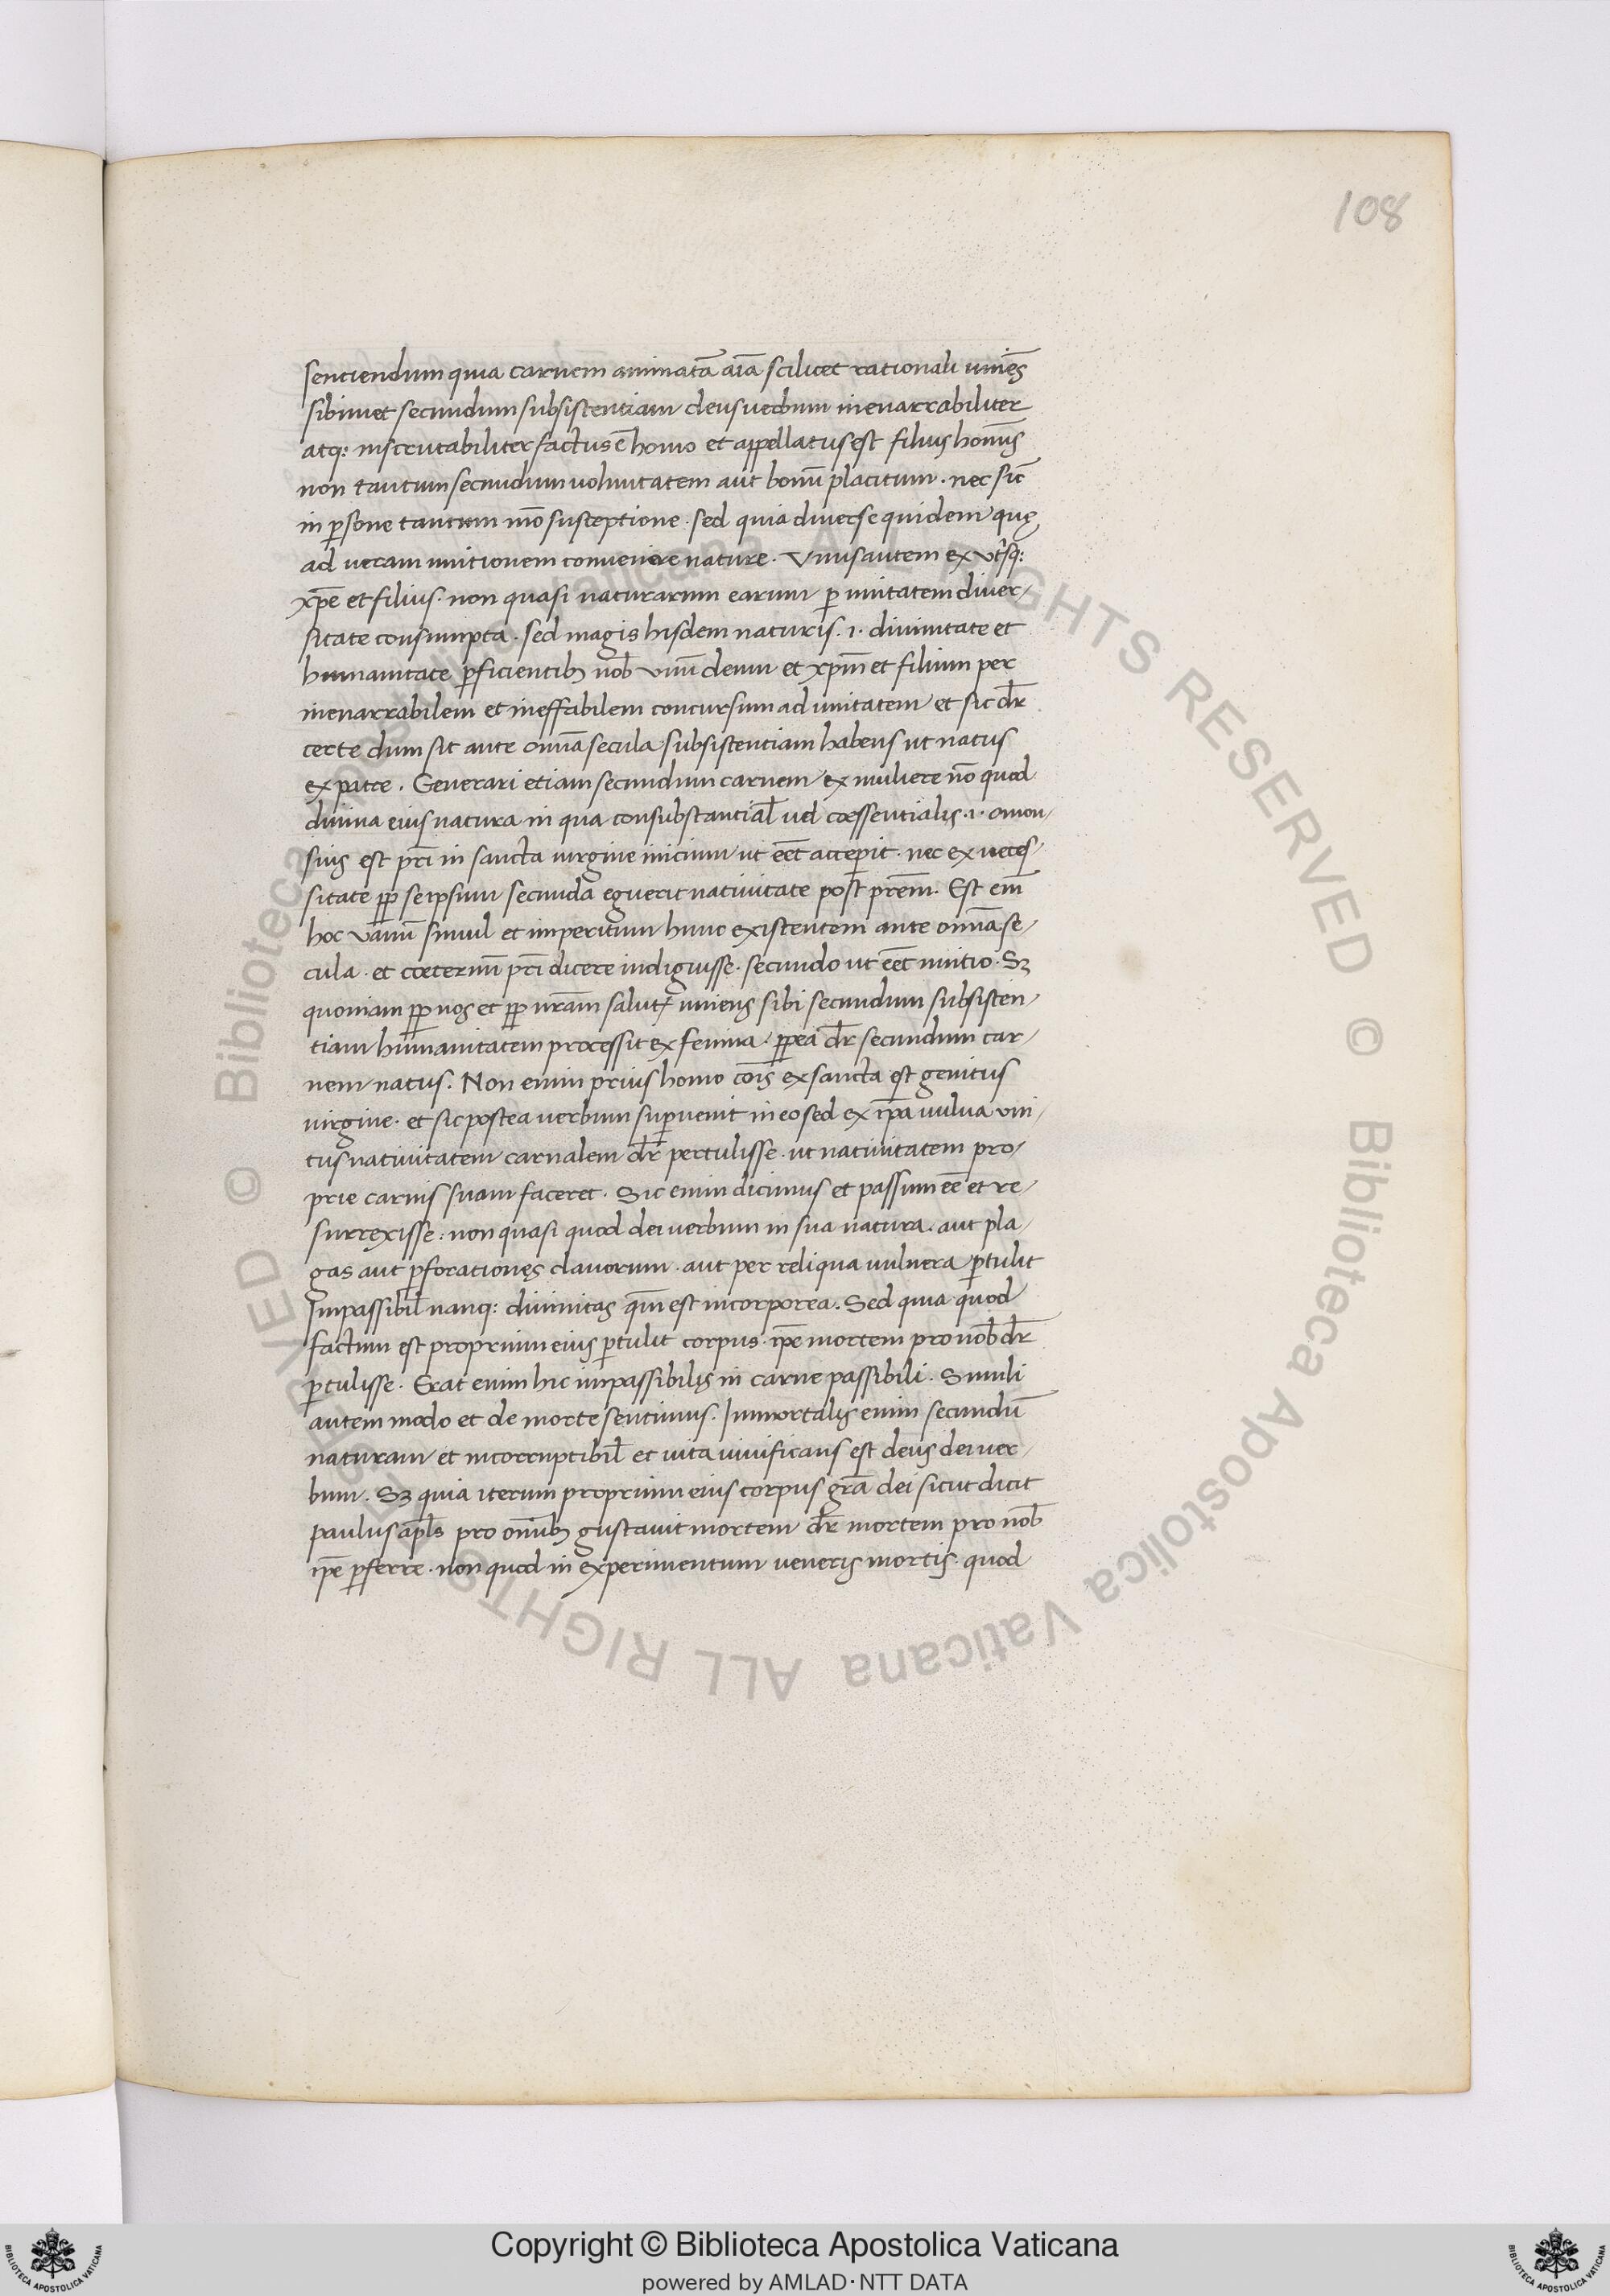 108
sentiendum quia carnem animatã aiã scilicet rationali uniẽs
sibimet secundum subsistentiam deus uerbum inenarrabiliter
atq: inscrutabiliter factus ẽ homo et appellatus est filius hominis
non tantum secundum uoluntatem aut bonũ placitum. nec sic̃
in p̱sone tantum mõ susceptione. sed quia diuerse quidem quę
ad ueram unitionem conuenire nature. Vnus autem ex utrisq:
xp̃e et filius. non quasi naturarum earum p̱ unitatem diuer-
sitate consumpta. sed magis hisdem naturis .i. diuinitate et
humanitate p̱ficientib; nob̃ unũ deum et xp̃m et filium per
inenarrabilem et ineffabilem concursum ad unitatem et sic dr̃
certe dum sit ante omĩa secula subsistentiam habens ut natus
ex patre. Generari etiam secundum carnem ex muliere nõ quod
diuina eius natura in qua consubstantial̃ uel coessentialis .i. omou-
sius est pr̃i in sancta uirgine inicium ut eẽt accepit. nec ex neces-
sitate pp̃ se ipsum secunda eguerit natiuitate post prẽm. Est em̃
hoc vanũ simul et imperitum hunc existentem ante omĩa se-
cula. et coeternũ pr̃i dicere indiguisse. secundo ut eẽt initio. Sꝫ
quoniam pp̃ nos et pp̃ nrãm salutẽ uniens sibi secundum subsisten-
tiam humanitatem processit ex femina. pp̃ea dr̃ secundum car-
nem natus. Non enim prius homo cõis ex sancta est genitus
uirgine. et sic postea uerbum sup̱uenit in eo sed ex ip̃a uulua uni-
tus natiuitatem carnalem dr̃ pertulisse. ut natiuitatem pro-
prie carnis suam faceret. Sic enim dicimus et passum eẽ et re-
surrexisse: non quasi quod dei uerbum in sua natura. aut pla-
gas aut p̱forationes clauorum. aut per reliqua uulnera p̱tulit
Impassibil̃ nanq: diuinitas qm̃ est incorporea. Sed quia quod
factum est proprium eius p̱tulit corpus. ip̃e mortem pro nob̃ dr̃
p̱tulisse. Erat enim hic impassibilis in carne passibili. Simili
autem modo et de morte sentimus. Inmortalis enim secundũ
naturam et incorruptibil̃ et uita uiuificans est deus dei uer-
bum. Sꝫ quia iterum proprium eius corpus gr̃a dei sicut dicit
paulus apl̃s pro omĩb; gustauit mortem dr̃ mortem pro nob̃
ip̃e p̱ferre. non quod in experimentum ueneris mortis. quod
© Biblioteca Apostolica Vaticana ALL RIGHTS RESERVED © Biblioteca Apostolica Vaticana ALL RIGHTS RESERVED
Copyright © Biblioteca Apostolica Vaticana
powered by AMLAD·NTT DATA
BIBLIOTECA APOSTOLICA VATICANA
BIBLIOTECA APOSTOLICA VATICANA